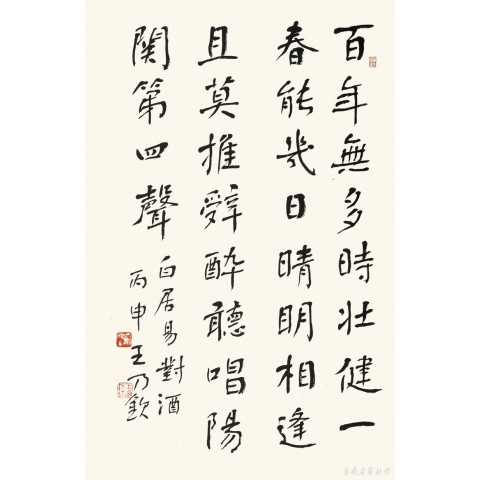 百年無多時壯健一
春能幾日晴明相逢
且莫推辭醉聽唱陽
関第四聲
白居易對酒
丙申王乃欽